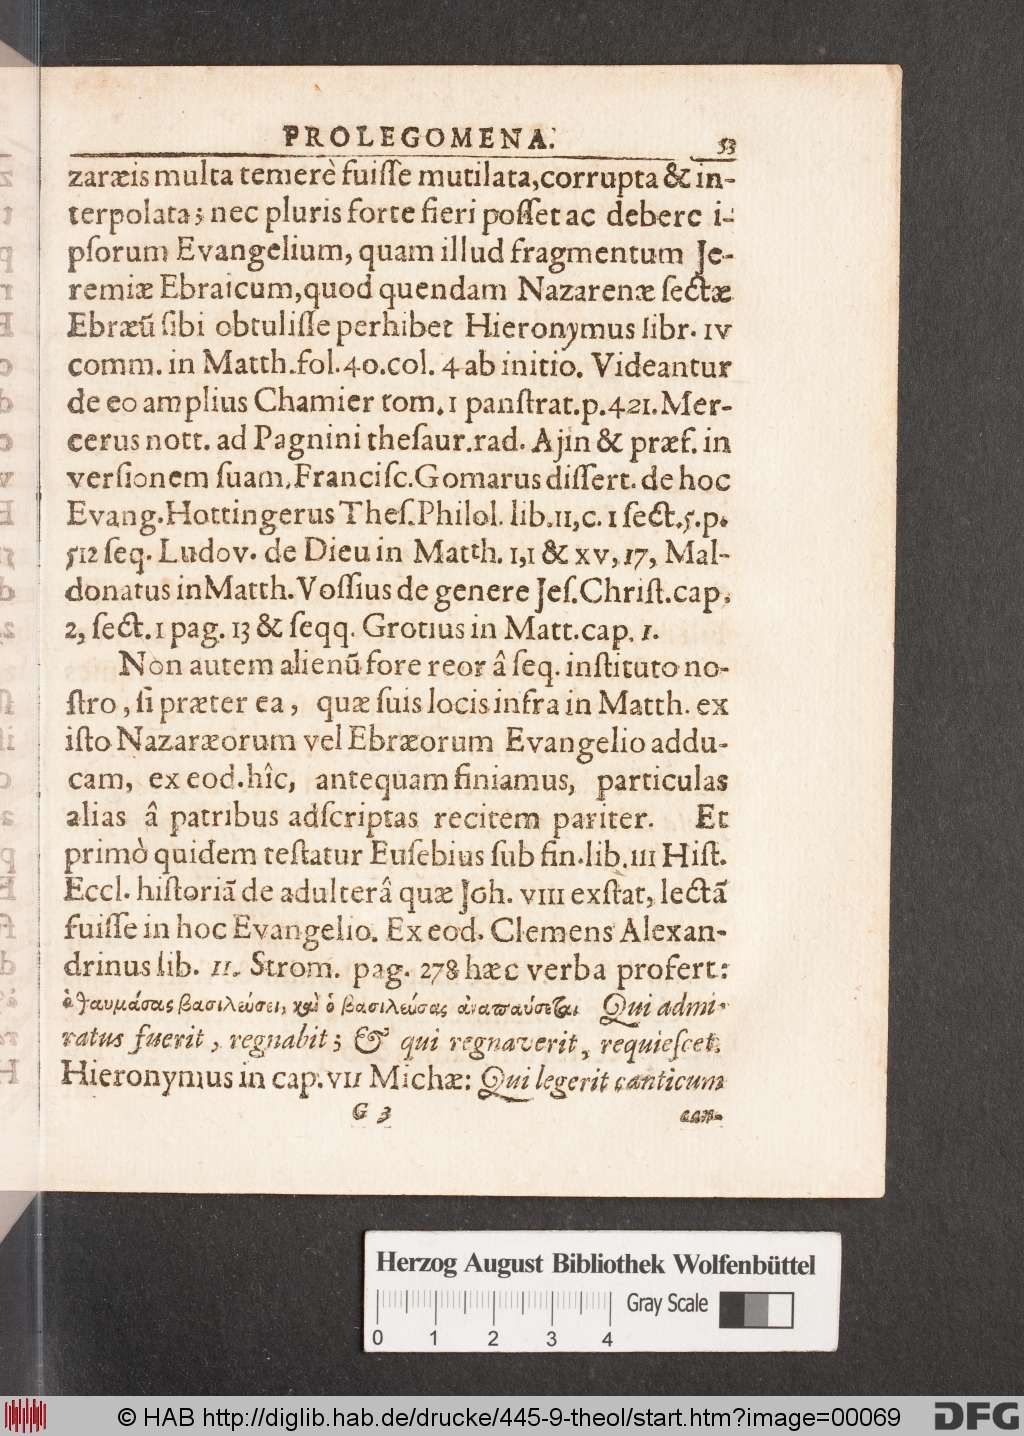 PROLEGOMENA. 53
zaræis multa temerè fuiſſe mutilata, corrupta & in-
terpolata; nec pluris forte fieri poſſet ac debere i-
pſorum Evangelium, quam illud fragmentum Je-
remiæ Ebraicum, quod quendam Nazarenæ ſectæ
Ebræũ ſibi obtuliſſe perhibet Hieronymus libr. IV
comm. in Matth. fol. 40. col. 4 ab initio. Videantur
de eo amplius Chamier tom. 1 panſtrat. p. 421. Mer-
cerus nott. ad Pagnini theſaur. rad. Ajin & præf. in
verſionem ſuam, Franciſc. Gomarus diſſert. de hoc
Evang. Hottingerus Theſ. Philol. lib. II, c. 1 ſect. 5. p.
512 ſeq. Ludov. de Dieu in Matth. 1,1 & XV, 17, Mal-
donatus in Matth. Voſſius de genere Jeſ. Chriſt. cap.
2, ſect. 1 pag. 13 & ſeqq. Grotius in Matt. cap. 1.
Non autem alienũ fore reor â ſeq. inſtituto no-
ſtro, ſi præter ea, quæ ſuis locis infra in Matth. ex
iſto Nazaræorum vel Ebræorum Evangelio addu-
cam, ex eod. hîc, antequam finiamus, particulas
alias â patribus adſcriptas recitem pariter. Et
primò quidem teſtatur Euſebius ſub fin. lib. III Hiſt.
Eccl. hiſtoriã de adulterâ quæ Joh. VIII exſtat, lectã
fuiſſe in hoc Evangelio. Ex eod. Clemens Alexan-
drinus lib. II. Strom. pag. 278 hæc verba profert:
ὁ θαυμάσας βασιλεύσει, καὶ ὁ βασιλεύσας ἀναπαύσεται Qui admi-
ratus fuerit, regnabit; & qui regnaverit, requieſcet.
Hieronymus in cap. VII Michæ: Qui legerit canticum
G 3 can-
Herzog August Bibliothek Wolfenbüttel
Gray Scale
0 1 2 3 4
© HAB http://diglib.hab.de/drucke/445-9-theol/start.htm?image=00069 DFG